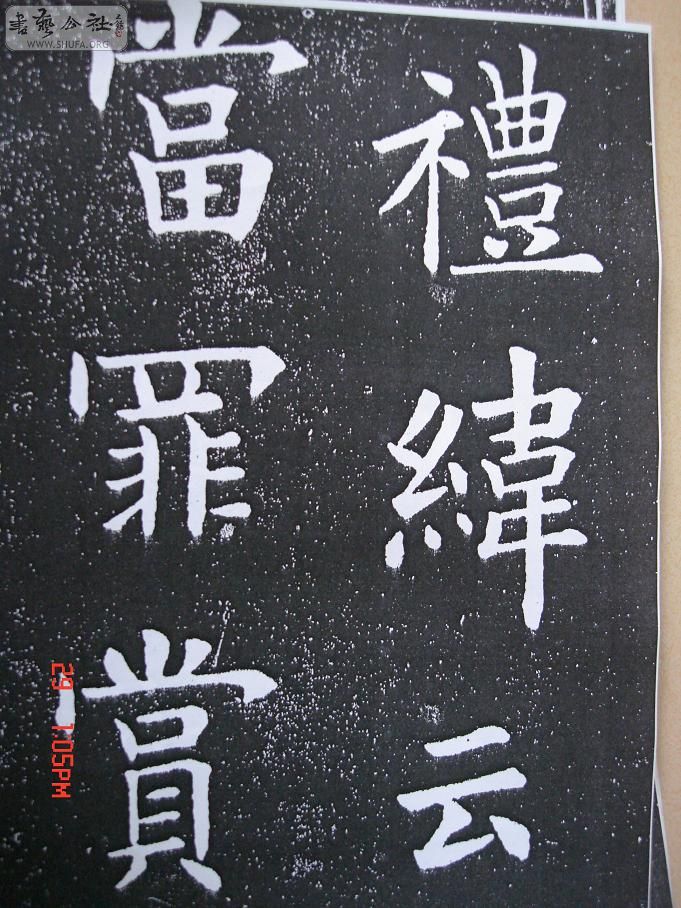 禮緯云
當罪賞
書藝公社
WWW.SHUFA.ORG
29 1:05PM